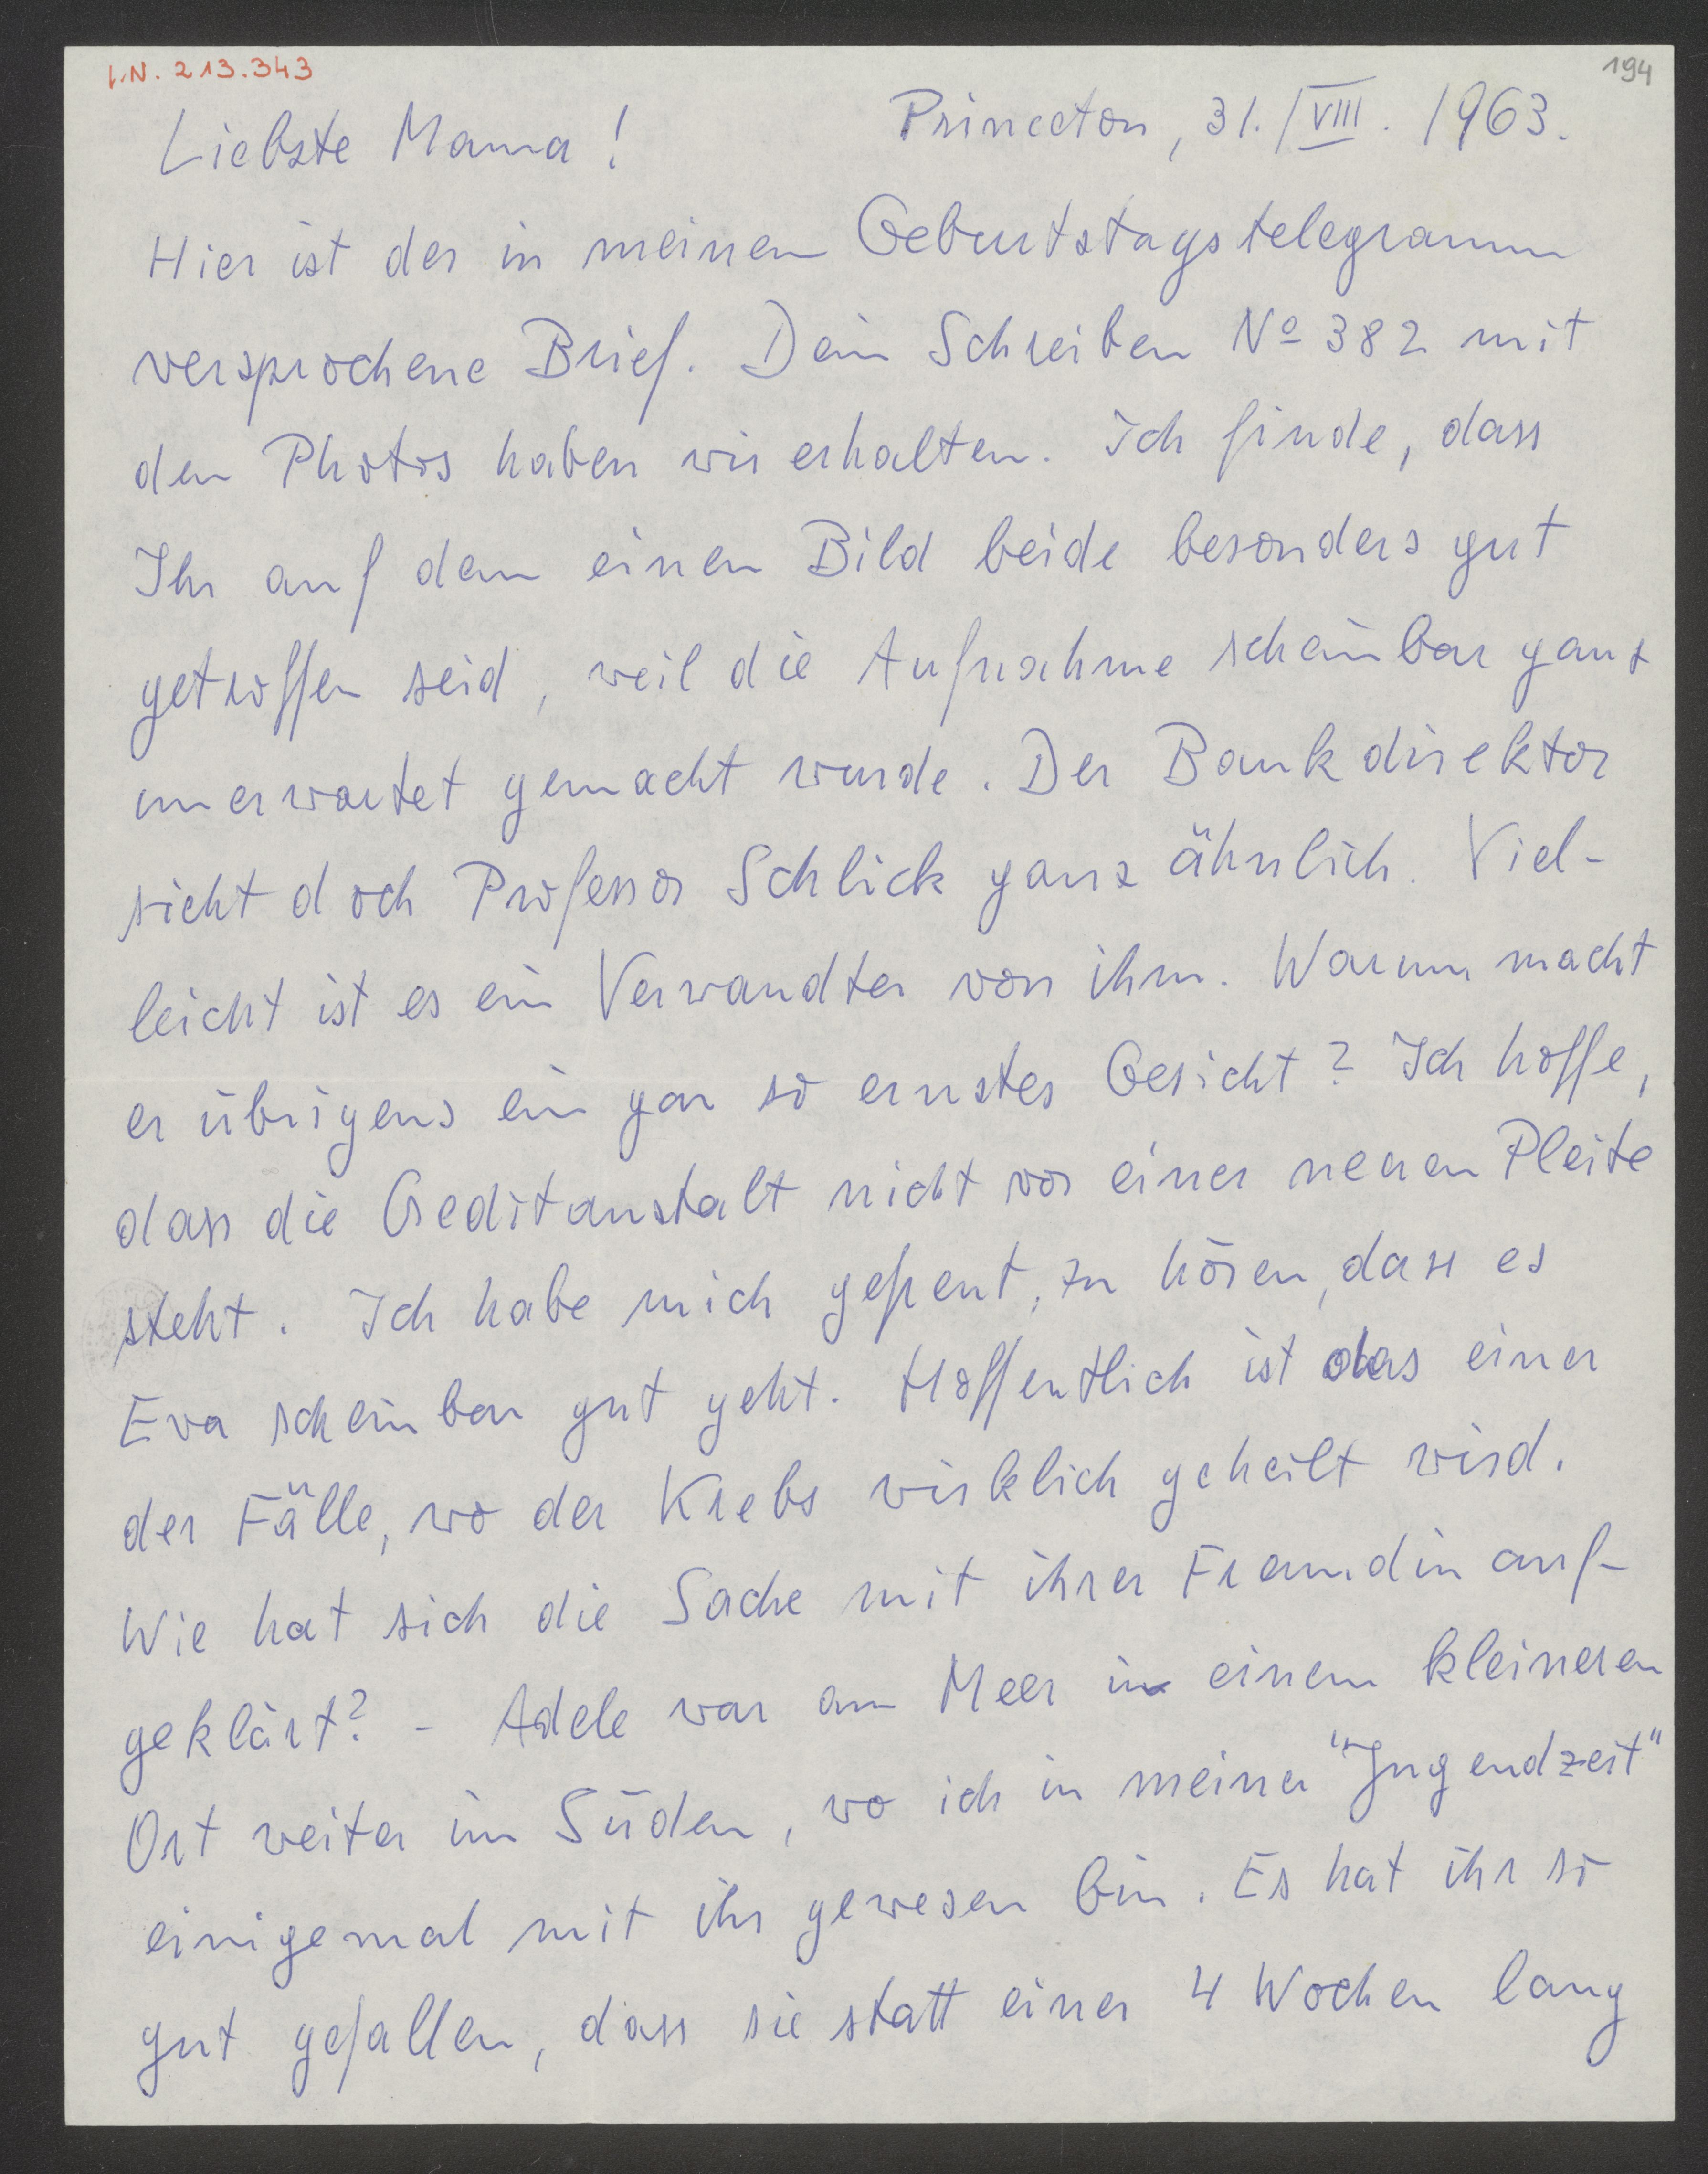 I.N. 213.343
194
Liebste Mama! Princeton, 31./VIII. 1963.
Hier ist der in meinem Geburtstagstelegramm
versprochene Brief. Dein Schreiben Nº 382 mit
den Photos haben wir erhalten. Ich finde, dass
Ihr auf dem einen Bild beide besonders gut
getroffen seid, weil die Aufnahme scheinbar ganz
unerwartet gemacht wurde. Der Bankdirektor
sieht doch Professor Schlick ganz ähnlich. Viel-
leicht ist es ein Verwandter von ihm. Warum macht
er übrigens ein gar so ernstes Gesicht? Ich hoffe,
dass die Creditanstalt nicht vor einer neuen Pleite
steht. Ich habe mich gefreut, zu hören, dass es
Eva scheinbar gut geht. Hoffentlich ist das einer
der Fälle, wo der Krebs wirklich geheilt wird.
Wie hat sich die Sache mit ihrer Freundin auf-
geklärt? - Adele war am Meer in einem kleineren
Ort weiter im Süden, wo ich in meiner "Jugendzeit"
einigemal mit ihr gewesen bin. Es hat ihr so
gut gefallen, dass sie statt einer 4 Wochen lang